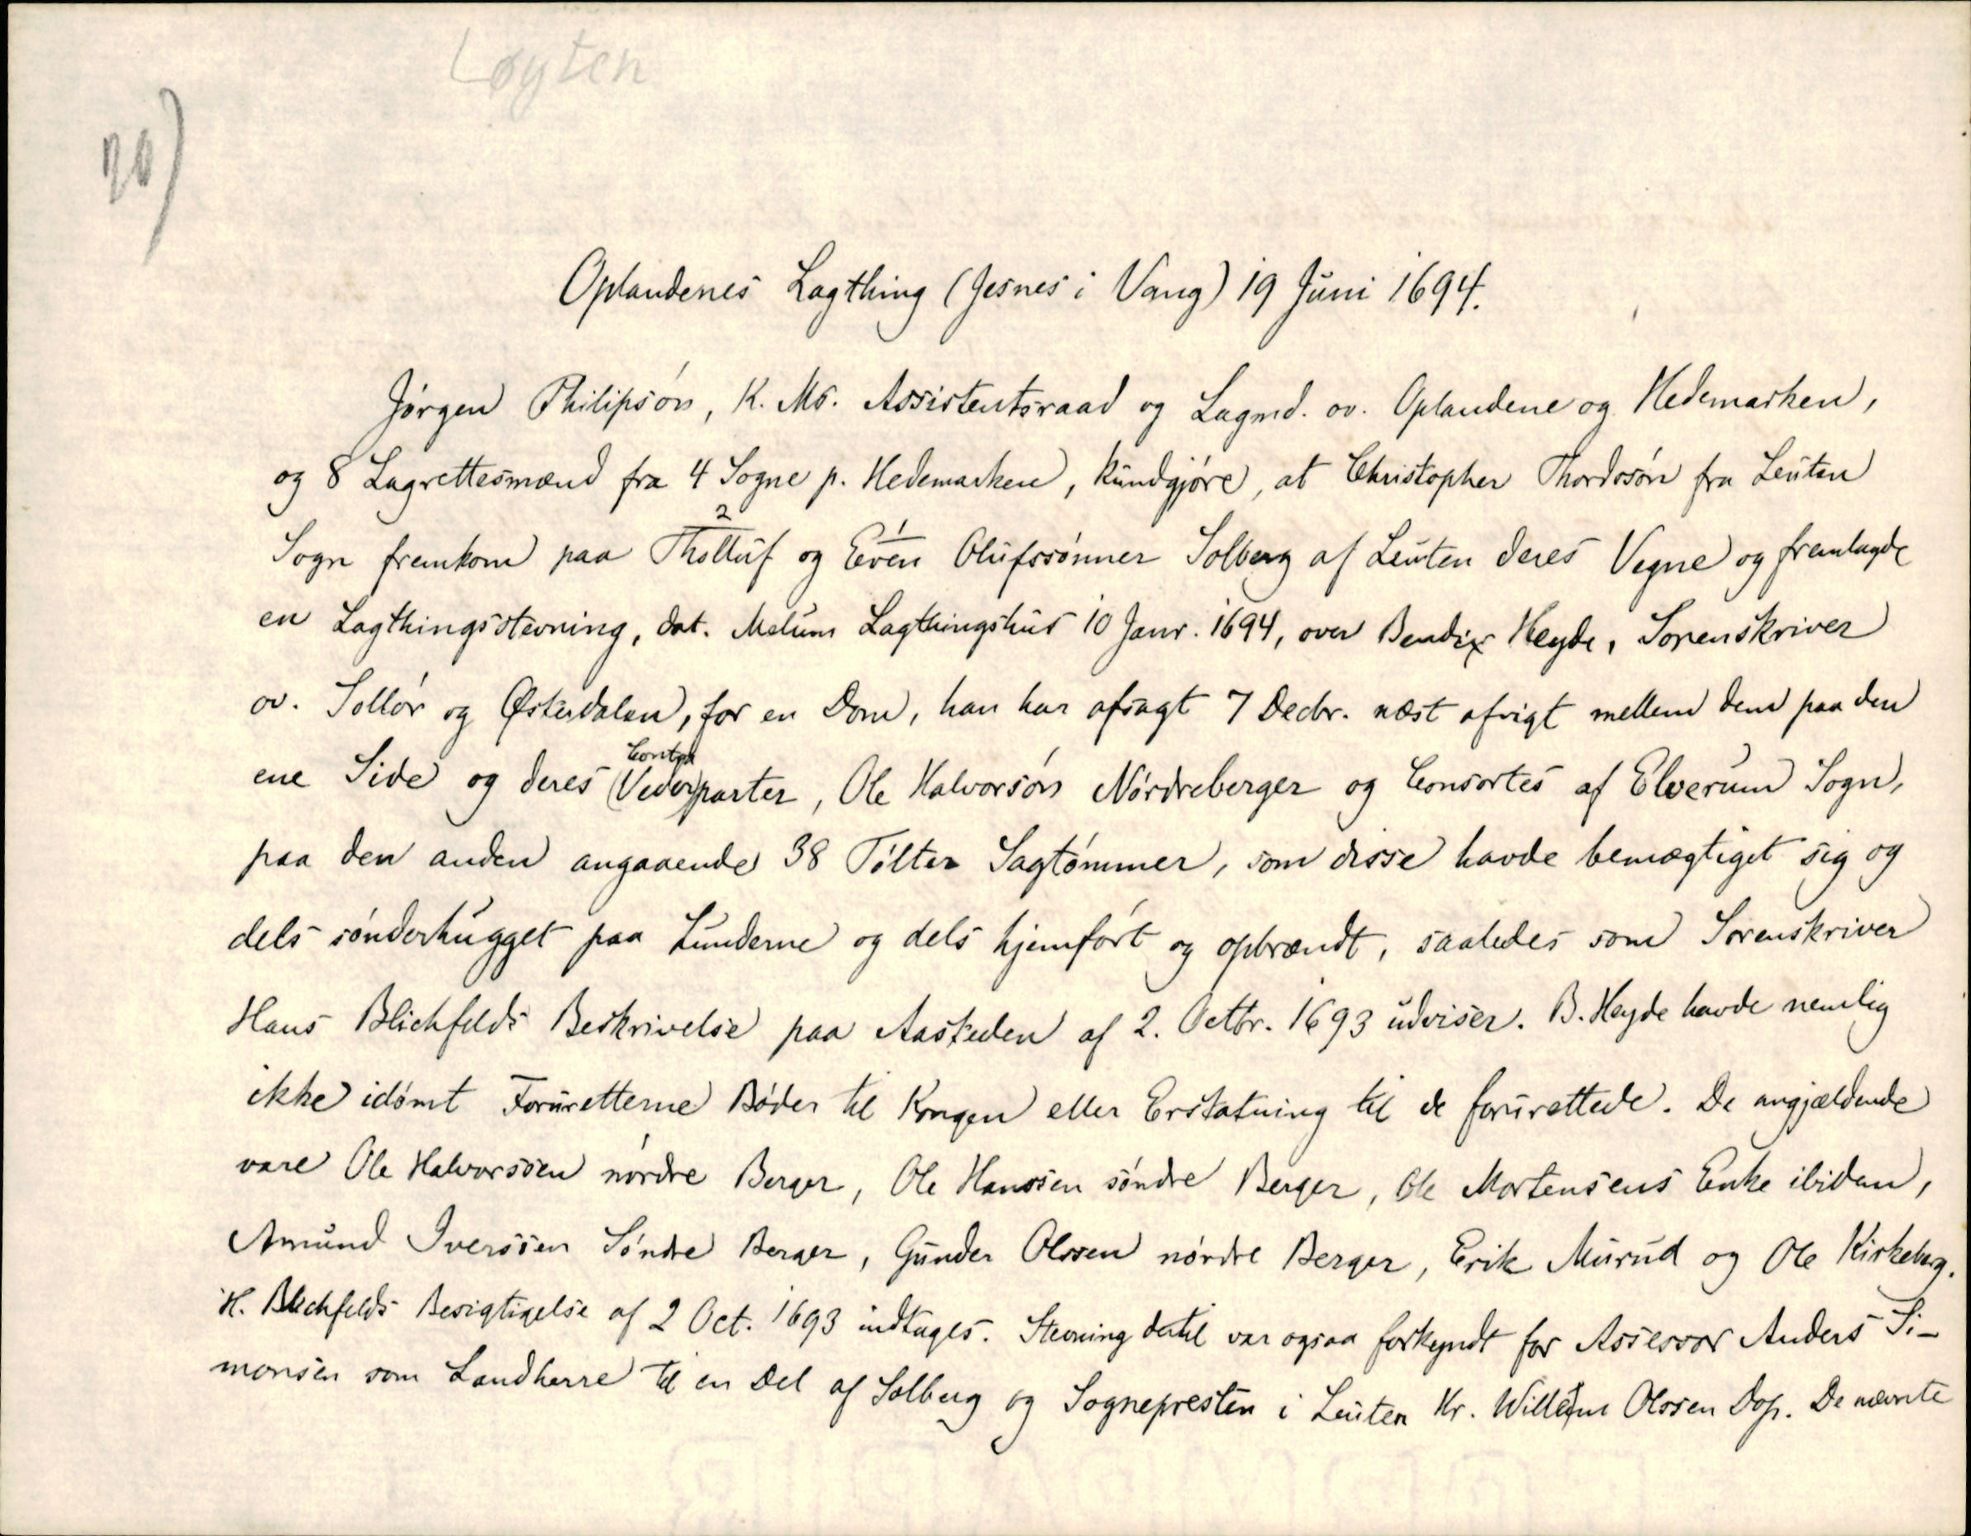 Løyten
20)
Oplandenes Lagthing (Jesnes i Vang) 19 Juni 1694.
Jørgen Philipsøn, K. Ms. Assistentsraad og Lagmd. ov. Oplandene og Hedemarken,
og 8 Lagrettesmænd fra 4 Sogne p. Hedemarken, kundgjøre, at Christopher Thordssøn fra Leuten
2 1
Sogn fremkom paa Thollüf og Even Olufssønner Solberg af Leuten deres Vegne og fremlagde
en Lagthingsstevning, dat. Melum Lagthingshus 10 Janr. 1694, over Bendix Heyde, Sorenskriver
ov. Sollør og Østerdalen, for en Dom, han har afsagt 7 Decbr. næst afvigt mellem dem paa den
Contra
ene Side og deres (Veder)parter, Ole Halvorsøn Nørdreberger og Consortes af Elverum Sogn,
paa den anden angaaende 38 Tølter Sagtømmer, som disse havde bemægtiget sig og
dels sønderhugget paa Lunderne og dels hjemført og opbrændt, saaledes som Sorenskriver
Hans Blichfelds Beskrivelse paa Aasteden af 2. Octbr. 1693 udviser. B. Heyde havde nemlig
ikke idømt Foruretterne Bøder til Kongen eller Erstatning til de forurettede. De angjældende
vare Ole Halvorssen nørdre Berger, Ole Hanssen søndre Berger, Ole Mortensens Enke ibidem,
Amund Iverssen Søndre Berger, Gunder Olssen nørdre Berger, Erik Murud og Ole Kirkeberg.
H. Blichfelds Besigtigelse af 2 Oct. 1693 indtages. Stevning dertil var ogsaa forkyndt for Assessor Anders Si-
monsen som Landherre til en Del af Solberg og Sognepresten i Leuten Hr. Willum Olssen Dop. De nævnte